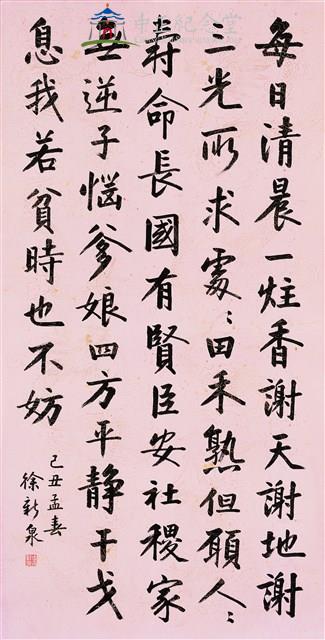 中正紀念堂
每日清晨一炷香謝天謝地謝
三光所求處〻田禾熟但願人〻
壽命長國有賢臣安社稷家
無逆子惱爹娘四方平靜干戈
息我若貧時也不妨
己丑孟春
徐新泉